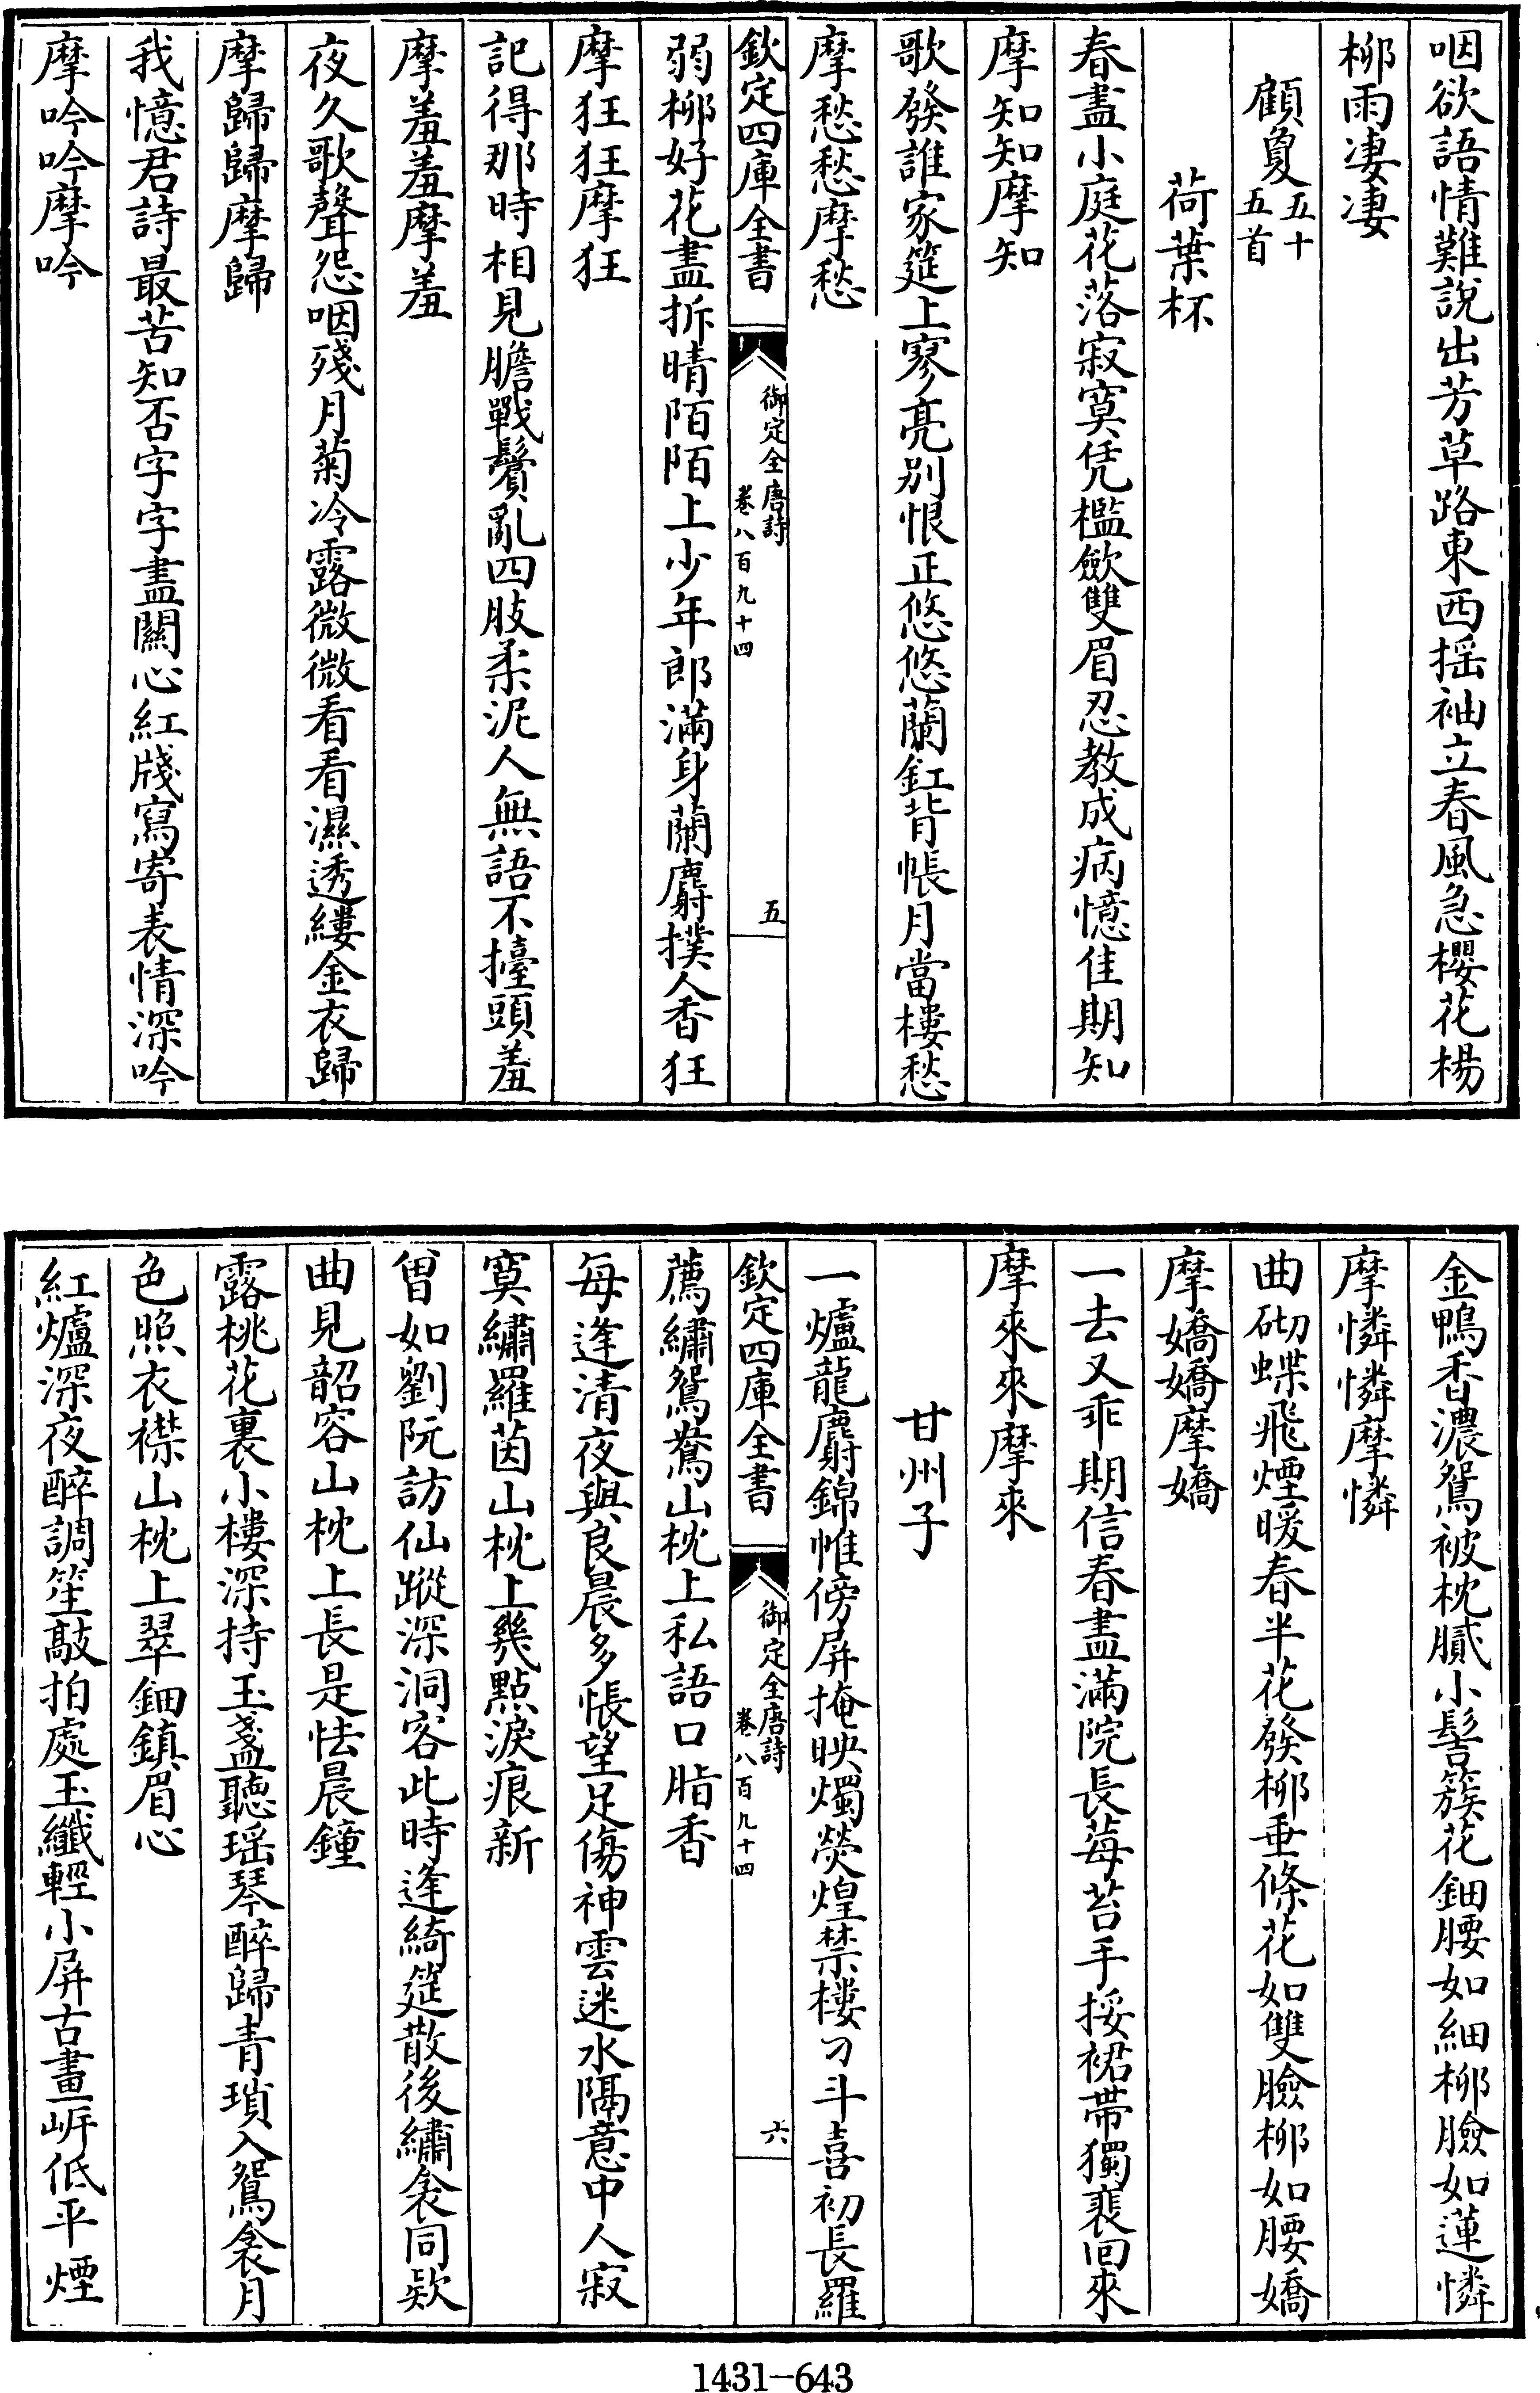 咽欲語情難說出芳草路東西揺袖立春風急櫻花楊
柳雨凄凄
顧夐五十五首
荷葉杯
春盡小庭花落寂寞凭檻歛雙眉忍教成病憶佳期知
摩知知摩知
歌發誰家筵上寥亮别恨正悠悠蘭釭背帳月當樓愁
摩愁愁摩愁
欽定四庫全書
御定全唐詩
卷八百九十四
五
弱柳好花盡拆晴陌陌上少年郎滿身蘭麝撲人香狂
摩狂狂摩狂
記得那時相見膽戰鬢亂四肢柔泥人無語不擡頭羞
摩羞羞摩羞
夜久歌聲怨咽殘月菊冷露微微看看濕透縷金衣歸
摩歸歸摩歸
我憶君詩最苦知否字字盡關心紅牋寫寄表情深吟
摩吟吟摩吟
金鴨香濃鴛被枕膩小髻簇花鈿腰如細柳臉如蓮憐
摩憐憐摩憐
曲砌蝶飛煙暖春半花發柳垂條花如雙臉柳如腰嬌
摩嬌嬌摩嬌
一去又乖期信春盡滿院長莓苔手挼裙帶獨裴回來
摩來來摩來
甘州子
一爐龍麝錦帷傍屏掩映燭熒煌禁樓刁斗喜初長羅
欽定四庫全書
御定全唐詩
卷八百九十四
六
薦繡鴛鴦山枕上私語口脂香
每逢清夜與良晨多悵望足傷神雲迷水隔意中人寂
寞繡羅茵山枕上幾點淚痕新
曽如劉阮訪仙蹤深洞客此時逢綺筵散後繡衾同欵
曲見韶容山枕上長是怯晨鐘
露桃花裏小樓深持玉盞聽瑶琴醉歸青瑣入鴛衾月
色照衣襟山枕上翠鈿鎮眉心
紅爐深夜醉調笙敲拍處玉纖輕小屏古畫㟁低平煙
1431-643